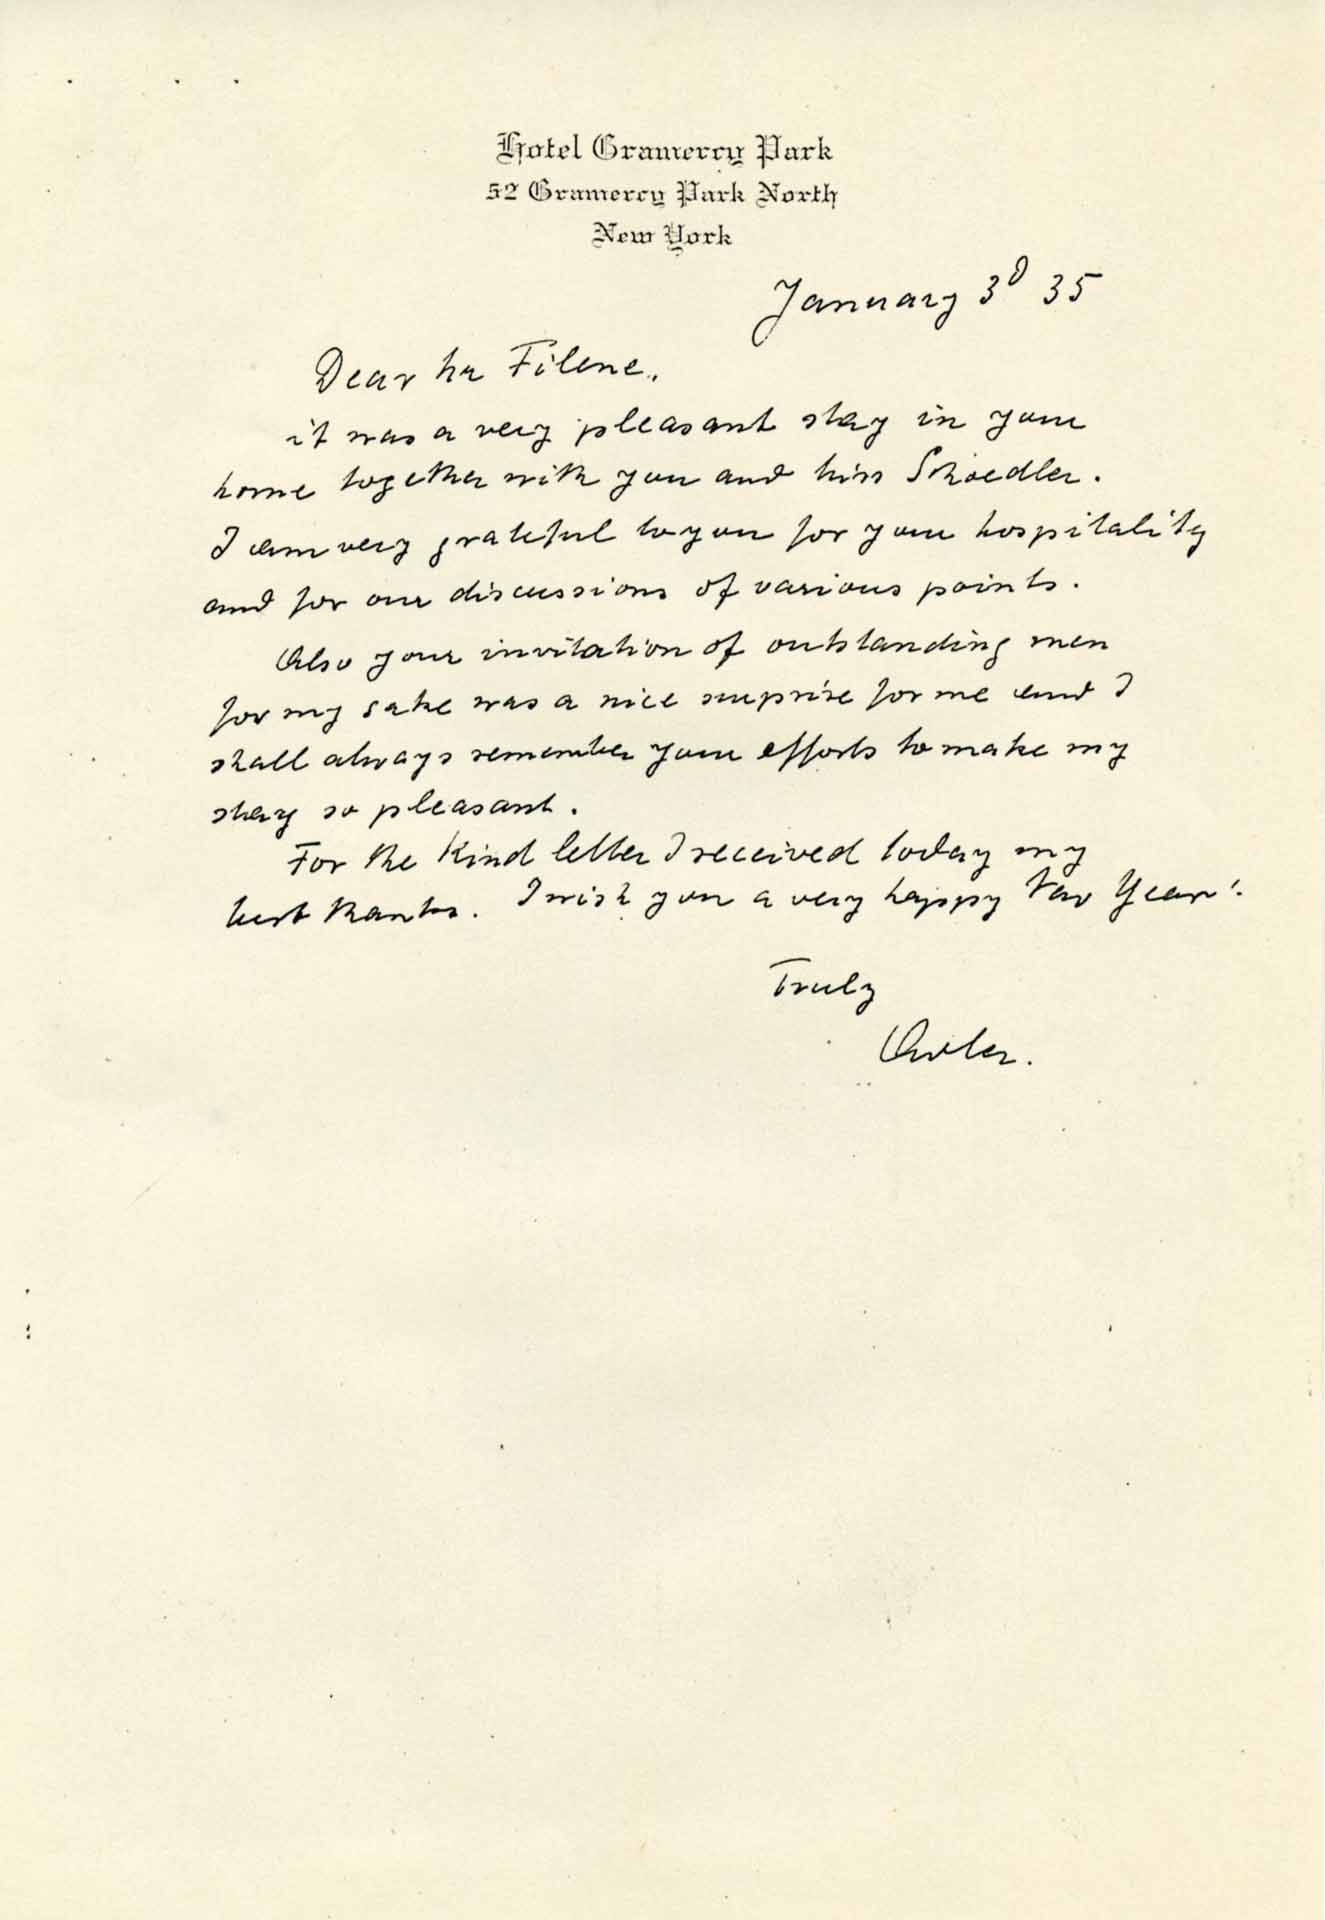 Hotel Gramercy Park
52 Gramercy Park North
New York
January 3d 35
Dear Mr Filene,
it was a very pleasant stay in your
home together with you and Miss Schoedler.
I am very grateful to you for your hospitality
and for our discussions of various points.
Also your invitation of outstanding men
for my sake was a nice surprise for me and I
shall always remember your efforts to make my
stay so pleasant.
For the kind letter I received today my
best thanks. I wish you a very happy New Year!
Truly